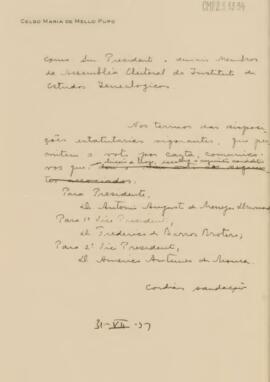 CELSO MARIA DE MELLO PUPO
CMP2.1.9.34
Exmo Snr Presidente e demais Membros
da Assembléia Eleitoral do Instituto de
Estudos Genealogicos
Nos termos das disposi-
ções estatutarias vigorantes, que per-
mitem o voto por carta, comunico-
vos que
Para Presidente,
D. Antonio Augusto de Menezes Drummond
Para 1º Vice Presidente,
D. Frederico de Barros Brotero;
Para 2º Vice Presidente,
D. Americo Antunes de Moura.
Cordiais saudações
31-VII-37